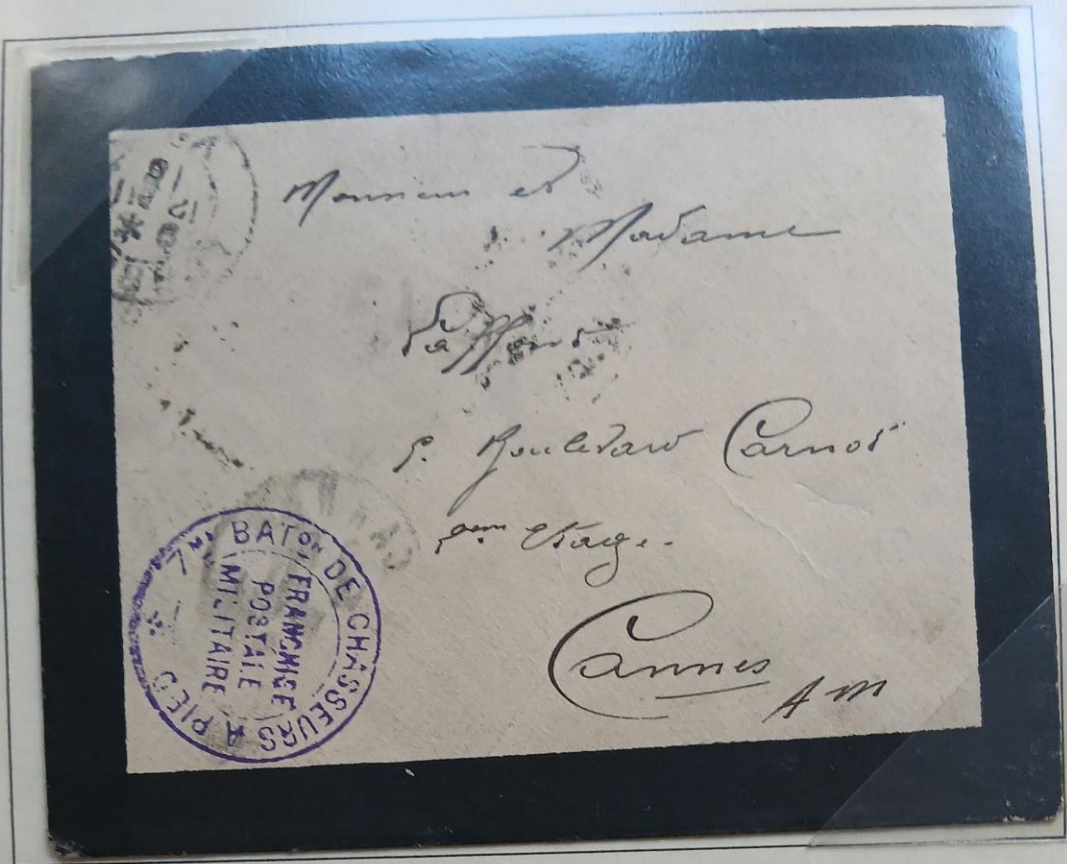 Monsieur et
Madame
Laffont
5. Boulevard Carnot
etage.
Cannes
A M
7me BATon DE CHASSEURS A PIED
FRANCHISE
POSTALE
MILITAIRE